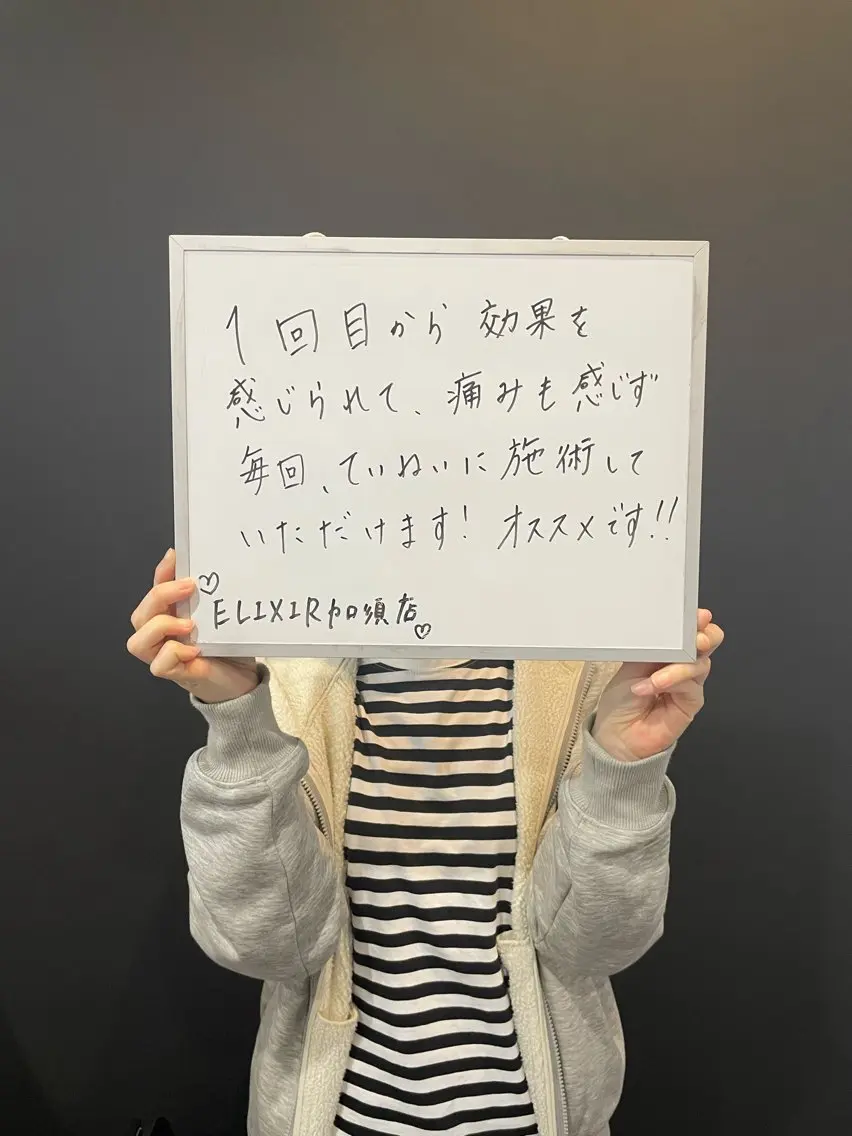 1回目から 効果を
感じられて、痛みも感じず
毎回、ていねいに施術して
いただけます! オススメです!!
♡ELIXIR加須店♡